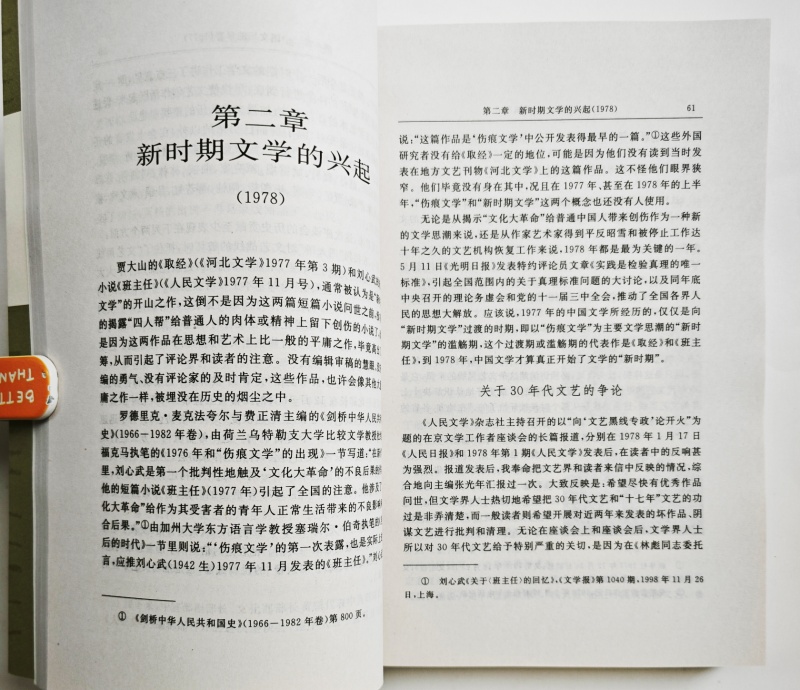 第二章
新时期文学的兴起
(1978)
贾大山的《取经》(《河北文学》1977年第3期)和刘心武的
小说《班主任》(《人民文学》1977年11月号),通常被认为是“
文学”的开山之作,这倒不是因为这两篇短篇小说问世之前,
的揭露“四人帮”给普通人的肉体或精神上留下创伤的小说了,
是因为这两作品在思想和艺术上比一般的平庸之作,毕竟高出
筹,从而引起了评论界和读者的注意。没有编辑审稿的慧眼、
编的勇气、没有评论家的及时肯定,这些作品,也许会像其他
庸之作一样,被埋没在历史的烟尘之中。
罗德里克·麦克法夸尔与费正清主编的《剑桥中华人民
史》(1966-1982年卷),由荷兰乌特勒支大学比较文学教授
福克马执笔的《1976年和“伤痕文学”的出现》一节写道:“在
里,刘心武是第一个批判性地触及‘文化大革命’的不良后果的
他的短篇小说《班主任》(1977年)引起了全国的注意。他涉及
化大革命’给作为其受害者的青年人正常生活带来的不良影响
合后果。”①由加州大学东方语言学教授塞瑞尔·伯奇执笔的
后的时代》一节里则说:“‘伤痕文学’的第一次表露,也是实际上
言,应推刘心武(1942生)1977年11月发表的《班主任》。”刘心
① 《剑桥中华人民共和国史》(1966-1982年卷)第800页。
第二章 新时期文学的兴起(1978) 61
说:“这篇作品是‘伤痕文学’中公开发表得最早的一篇。”①这些外国
研究者没有给《取经》一定的地位,可能是因为他们没有读到当时发
表在地方文艺刊物《河北文学》上的这篇作品。这不怪他们眼界狭
窄。他们毕竟没有身在其中,况且在1977年、甚至在1978年的上半
年,“伤痕文学”和“新时期文学”这两个概念也还没有人使用。
无论是从揭示“文化大革命”给普通中国人带来创伤作为一种新
的文学思潮来说,还是从作家艺术家得到平反昭雪和被停止工作达
十年之久的文艺机构恢复工作来说,1978年都是最为关键的一年。
5月11日《光明日报》发表特约评论员文章《实践是检验真理的唯一
标准》,引起全国范围内的关于真理标准问题的大讨论,以及同年底
中央召开的理论务虚会和党的十一届三中全会,推动了全国各界人
民的思想大解放。应该说,1977年的中国文学所经历的,仅仅是向
“新时期文学”过渡的时期,即以“伤痕文学”为主要文学思潮的“新时
期文学”的滥觞期,这个过渡期或滥觞期的代表作是《取经》和《班主
任》,到1978年,中国文学才算真正开始了文学的“新时期”。
关于30年代文艺的争论
《人民文学》杂志社主持召开的以“向‘文艺黑线专政’论开火”为
题的在京文学工作者座谈会的长篇报道,分别在1978年1月17日
《人民日报》和1978年第1期《人民文学》发表后,在读者中的反响甚
为强烈。报道发表后,我奉命把文艺界和读者来信中反映的情况,综
合地向主编张光年汇报过一次。大致反映是:希望尽快有优秀作品
问世,但文学界人士热切地希望把30年代文艺和“十七年”文艺的功
过是非弄清楚,而一般读者则希望开展对近两年来发表的坏作品、阴
谋文艺进行批判和清理。无论在座谈会上和座谈会后,文学界人士
所以对30年代文艺给予特别严重的关切,是因为在《林彪同志委托
① 刘心武《关于〈班主任〉的回忆》,《文学报》第1040期,1998年11月26
日,上海。
BETT
THAN